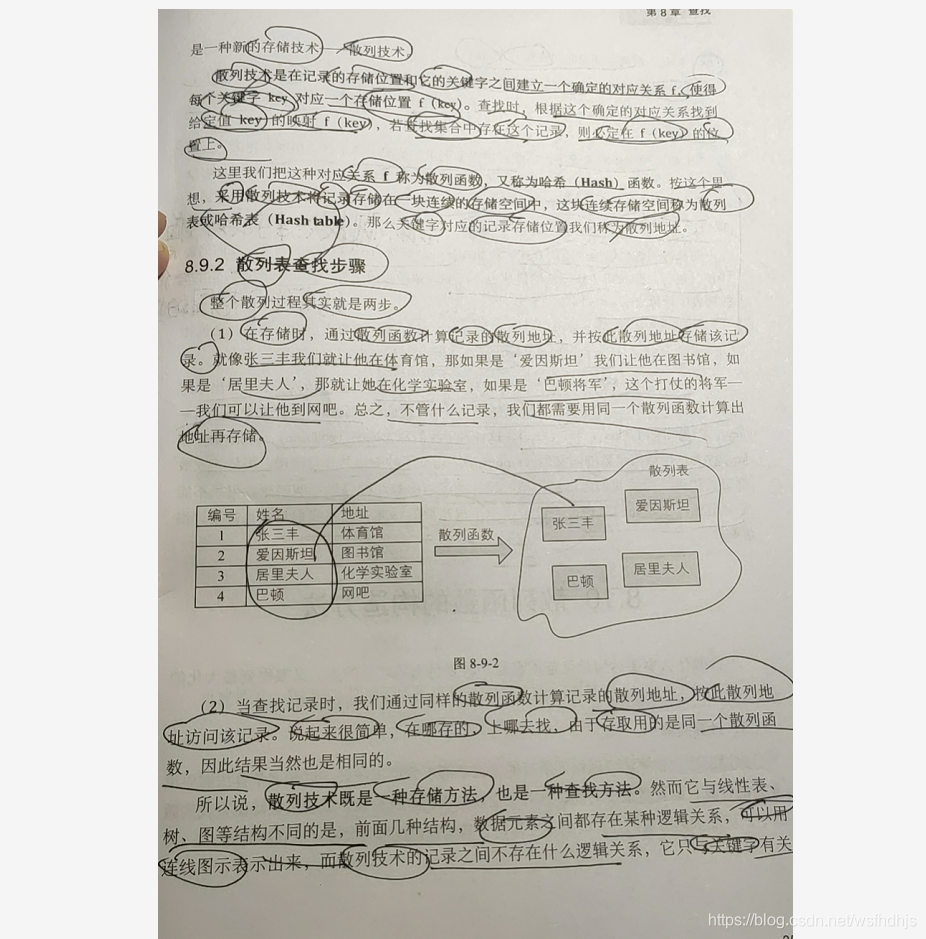 第8章 查找
是一种新的存储技术——散列技术。
散列技术是在记录的存储位置和它的关键字之间建立一个确定的对应关系 f，使得
每个关键字 key 对应一个存储位置 f（key）。查找时，根据这个确定的对应关系找到
给定值 key）的映射 f（key），若查找集合中存在这个记录，则必定在 f（key）的位
置上。
这里我们把这种对应关系 f 称为散列函数，又称为哈希（Hash）函数。按这个思
想，采用散列技术将记录存储在一块连续的存储空间中，这块连续存储空间称为散列
表或哈希表（Hash table）。那么关键字对应的记录存储位置我们称为散列地址。
8.9.2 散列表查找步骤
整个散列过程其实就是两步。
（1）在存储时，通过散列函数计算记录的散列地址，并按此散列地址存储该记
录。就像张三丰我们就让他在体育馆，那如果是‘爱因斯坦’我们让他在图书馆，如
果是‘居里夫人’，那就让她在化学实验室，如果是‘巴顿将军’，这个打仗的将军—
—我们可以让他到网吧。总之，不管什么记录，我们都需要用同一个散列函数计算出
地址再存储。
编号 姓名 地址
1 张三丰 体育馆
2 爱因斯坦 图书馆
3 居里夫人 化学实验室
4 巴顿 网吧
散列函数
散列表
张三丰 爱因斯坦
巴顿 居里夫人
图 8-9-2
（2）当查找记录时，我们通过同样的散列函数计算记录的散列地址，按此散列地
址访问该记录。说起来很简单，在哪存的，上哪去找，由于存取用的是同一个散列函
数，因此结果当然也是相同的。
所以说，散列技术既是一种存储方法，也是一种查找方法。然而它与线性表、
树、图等结构不同的是，前面几种结构，数据元素之间都存在某种逻辑关系，可以用
连线图示表示出来，而散列技术的记录之间不存在什么逻辑关系，它只与关键字有关
https://blog.csdn.net/wslhdhjs